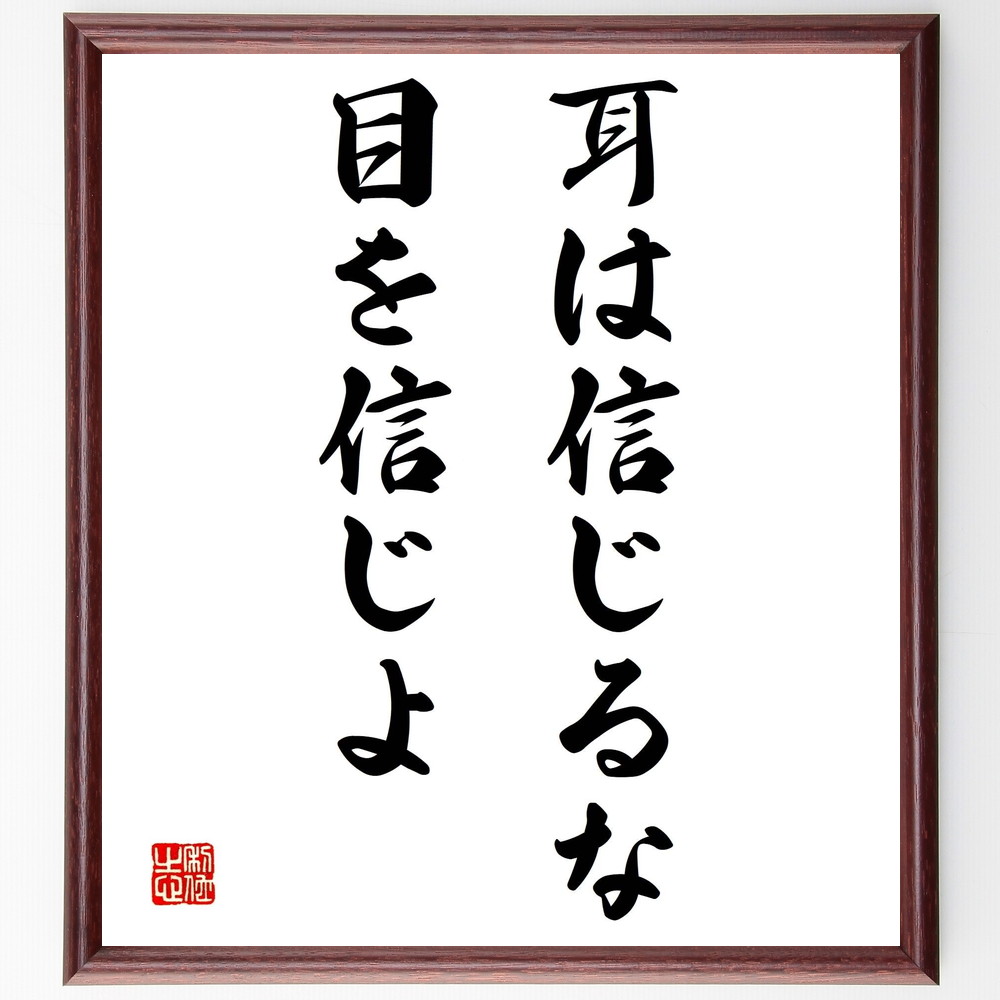 耳は信じるな
目を信じよ